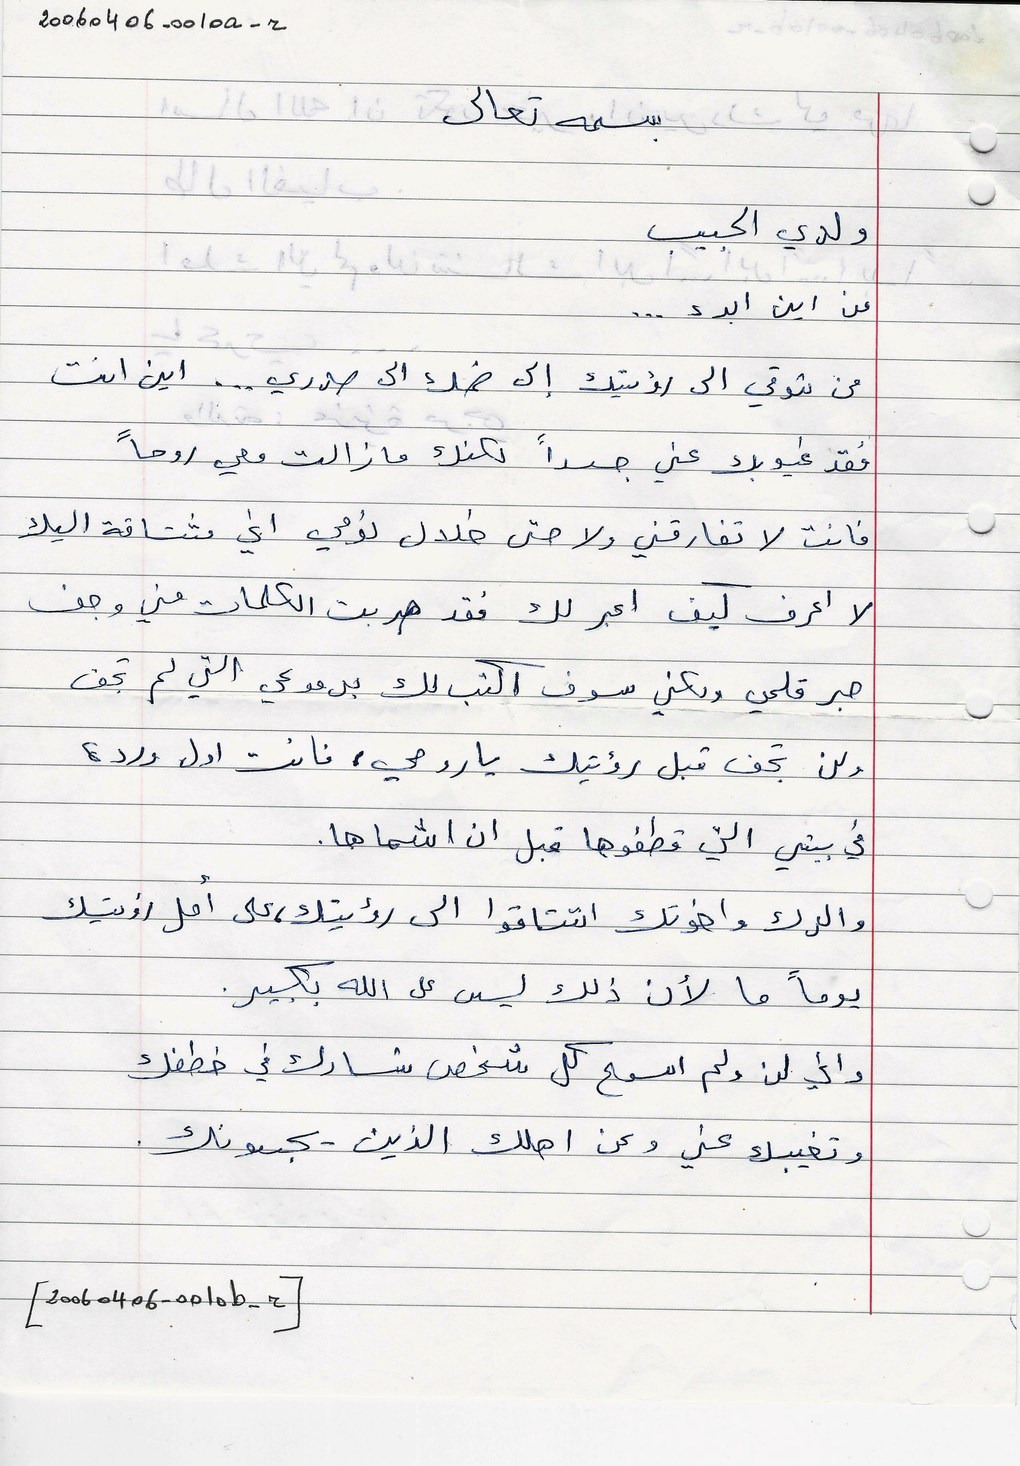 20060406-0010a-r
بسمه تعالى
ولدي الحبيب
من اين ابدء ...
من شوقي الى رؤيتك إلى ضمك الى صدري ... اين انت
فقد غيوبك عني جسداً لكنك مازالت معي روحاً
فانت لا تفارقني ولا حتى خلال نومي اني مشتاقة اليك
لا اعرف كيف اعبر لك فقد هربت الكلمات مني وجف
حبر قلمي ولكني سوف اكتب لك بدموعي التي لم تجف
ولن تجف قبل رؤيتك يا روحي، فانت اول وردة
في بيتي التي قطفوها قبل ان اشماها.
والدك واخوتك اشتاقوا الى رؤيتك، على أمل رؤيتك
يوماً ما لأن ذلك ليس على الله بكبير.
واني لن ولم اسمح كل شخص شارك في خطفك
وتغيبك عني وعن اهلك الذين يحبونك.
[20060406-0010b-r]